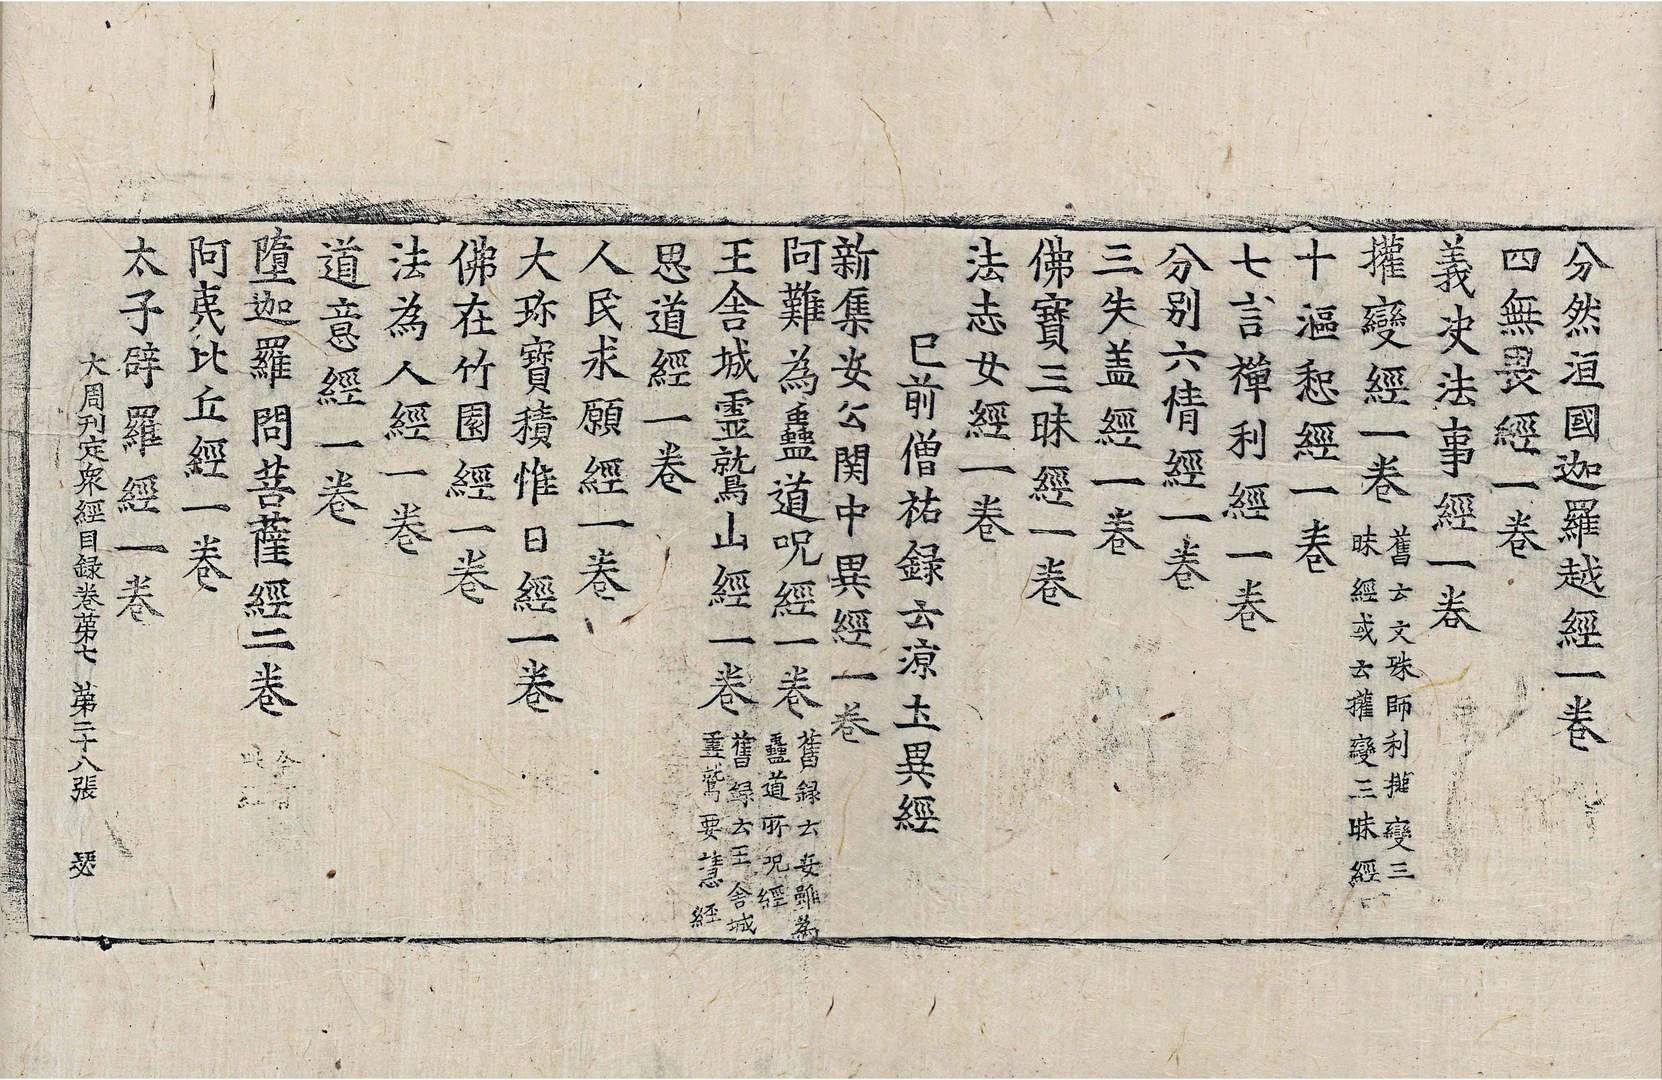 分然洹國迦羅越經一卷
四無畏經一卷
義决法事經一卷
㩲變經一卷
舊云文殊師利㩲變三
昧經或云㩲變三昧經
十漚惒經一卷
七言禪利經一卷
分别六情經一卷
三失盖經一卷
佛寶三昧經一卷
法志女經一卷
已前僧祐録云涼土異經
新集安公関中異經一卷
阿難為蠱道呪經一卷
舊録云安難為
蠱道所呪經
王舍城靈鷲山經一卷
舊録云王舍城
靈鷲要慧經
思道經一卷
人民求願經一卷
大珎寶積惟日經一卷
佛在竹園經一卷
法為人經一卷
道意經一卷
墮迦羅問菩薩經二卷
阿夷比丘經一卷
太子辟羅經一卷
大周刊定衆經目録卷苐七 苐二十八張 瑟